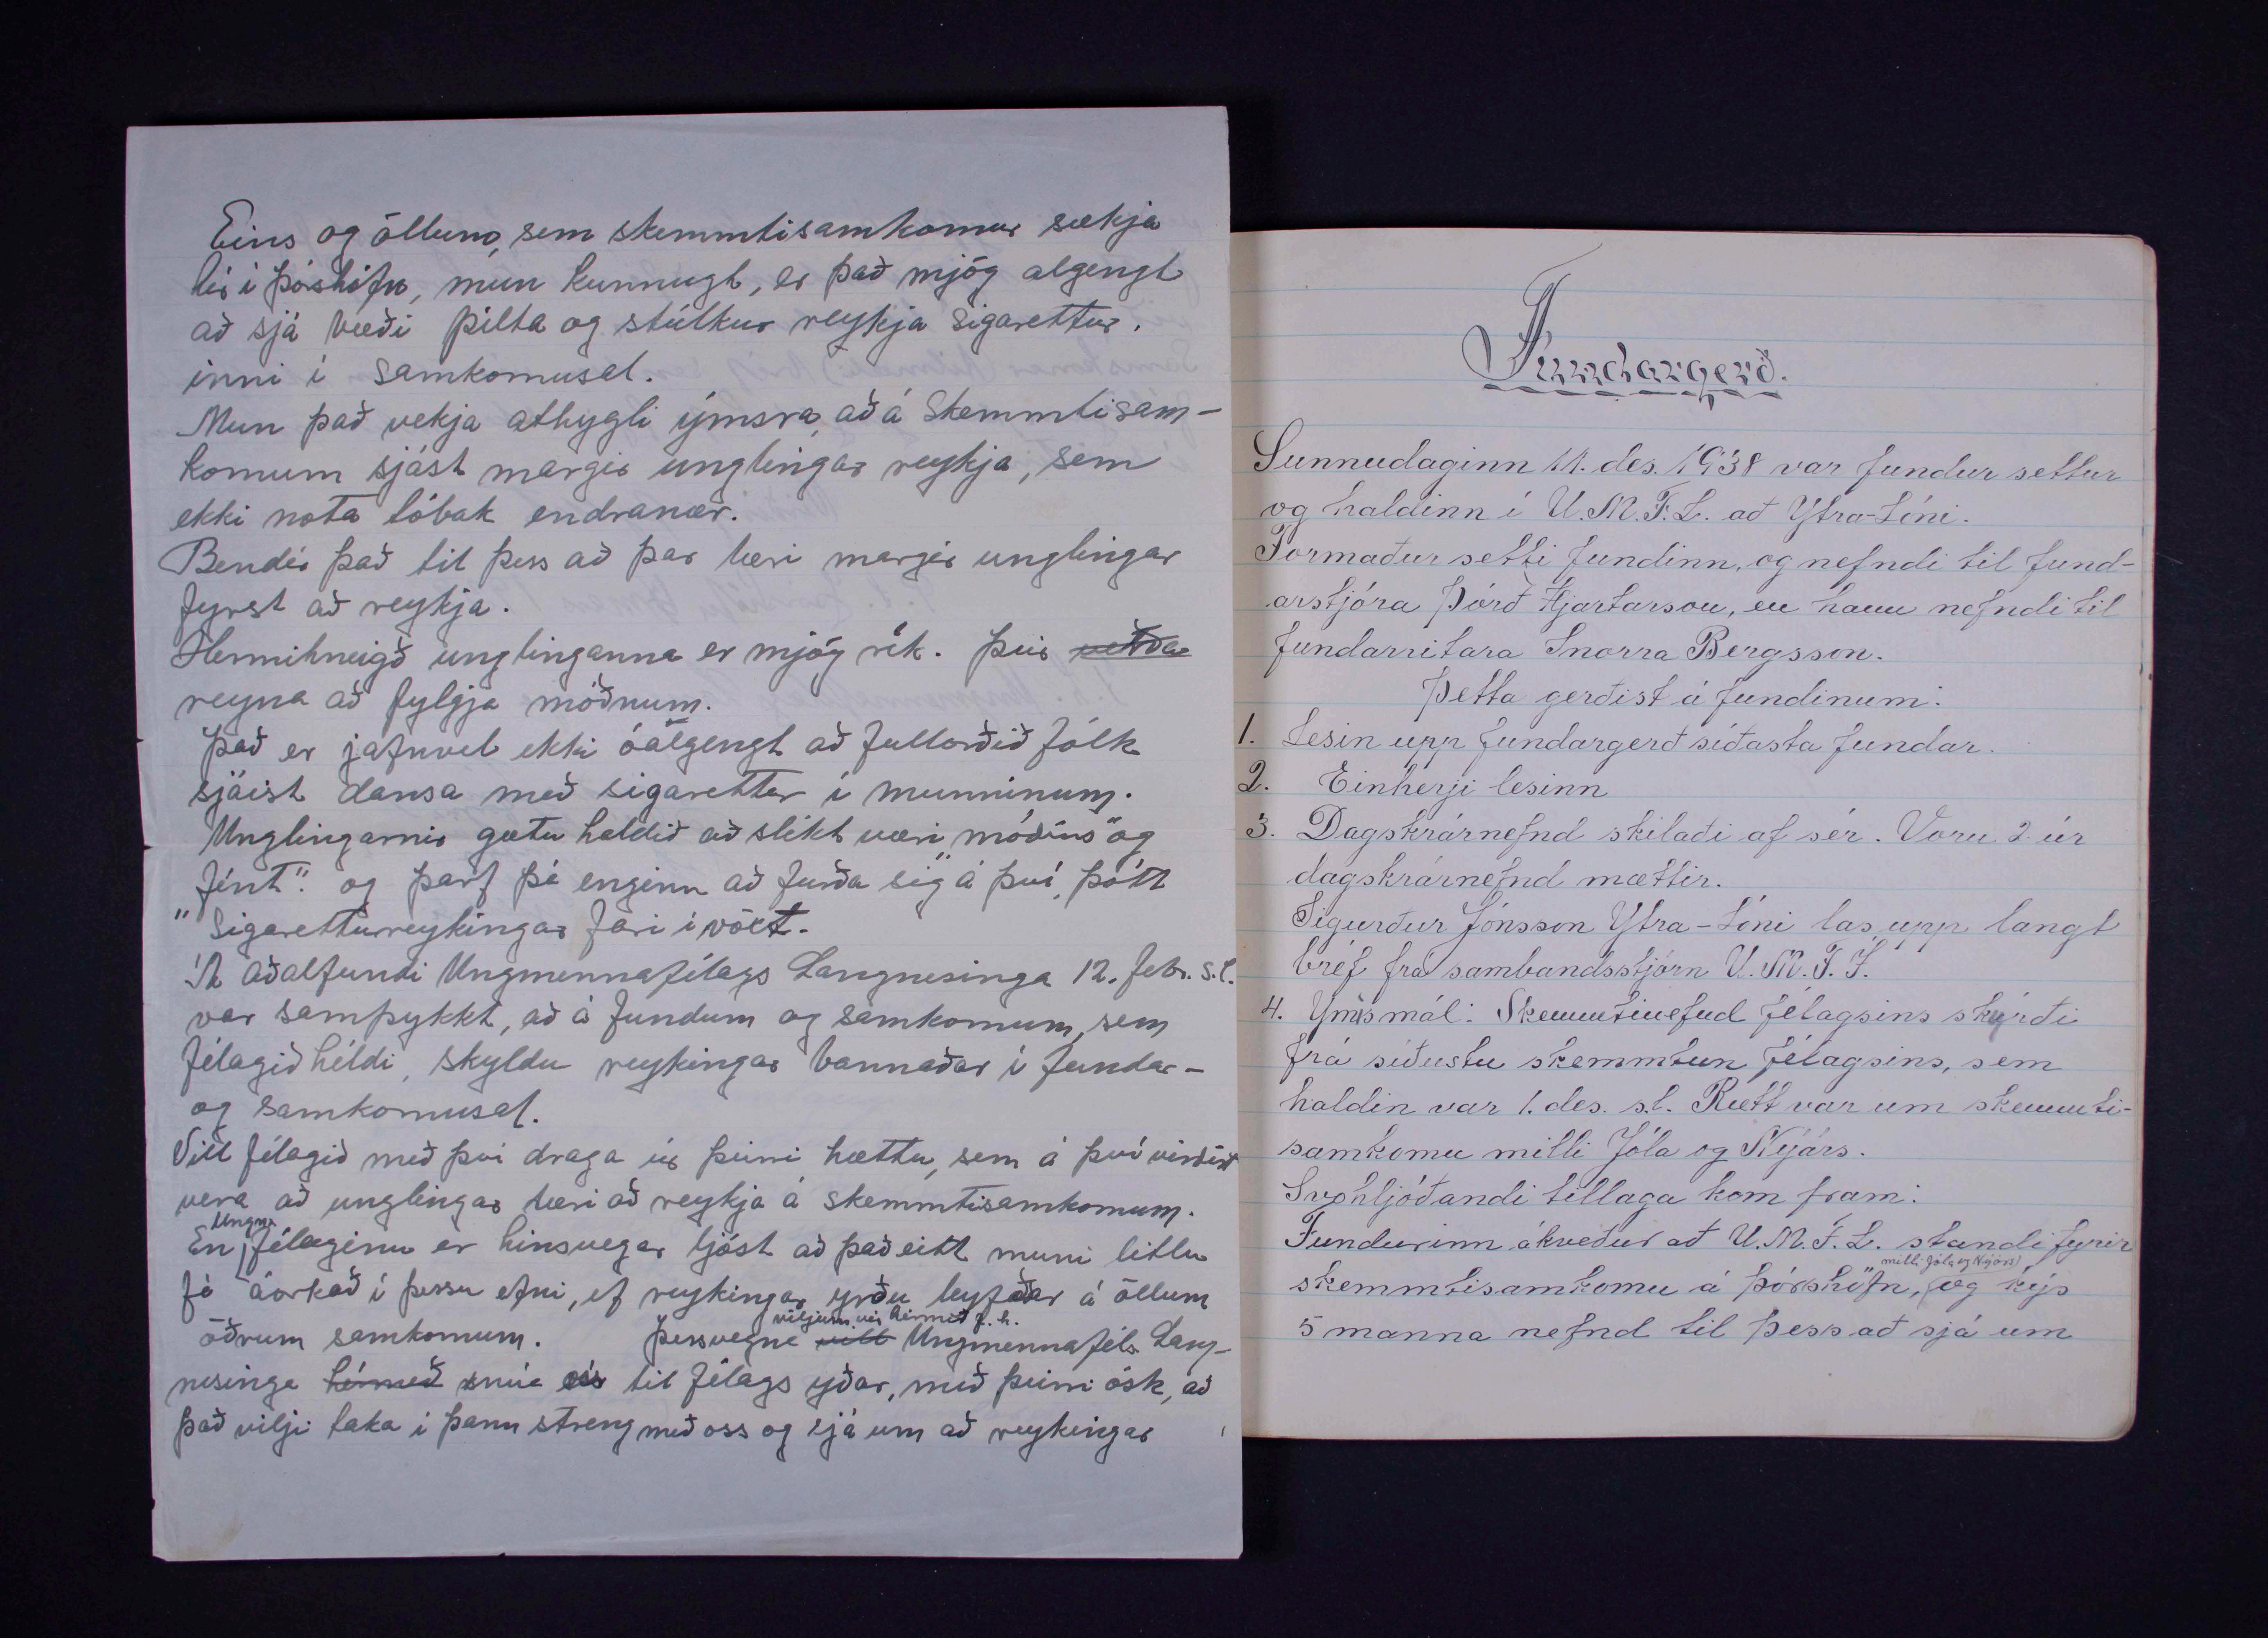 Eins og öllum, sem skemmtisamkomur sækja
hér í Þórshöfn, mun kunnugt, er það mjög algengt
að sjá bæði pilta og stúlkur reykja sigarettur.
inni í samkomusal.
Mun það vekja athygli ýmsra, að á skemmtisam-
komum sjást margir unglingar reykja, sem
ekki nota tóbak endranær.
Bendir það til þess að þar læri margir unglingar
fyrst að reykja.
Hermihneigð unglinganna er mjög rík. Þeir verða
reyna að fylgja móðnum.
Það er jafnvel ekki óalgengt að fullorðið fólk
sjáist dansa með sigarettur í munninum.
Unglingarnir gætu haldið að slíkt væri "móðins og
fínt". og þarf þá enginn að furða sig á því, þótt
"sigaretturreykingar færi í vöxt.
Á aðalfundi Ungmennafélags Langnesinga 12. febr. s.l.
var samþykkt, að á fundum og samkomum, sem
félagið héldi, skyldu reykingar bannaðar í fundar-
og samkomusal.
Vill félagið með því draga úr þeirri hættu, sem á því virðist
vera að unglingar læri að reykja á skemmtisamkomum.
En Ungm.félaginu er hinsvegar ljóst að það eitt muni litlu
fá áorkað í þessu efni, ef reykingar yrðu leyfðar á öllum
öðrum samkomum. Þessvegna vill viljum vér hérmeð f. h. Ungmennafél. Lang-
nesinga hérmeð snúa oss til félags yðar, með þeirri ósk, að
það vilji taka í þann streng með oss og sjá um að reykingar
Fundargerð.
Sunnudaginn 11. des. 1938 var fundur settur
og haldinn í U.M.F.L. að Ytra-Lóni.
Formaður setti fundinn, og nefndi til fund-
arstjóra Þórð Hjartarson, en hann nefndi til
fundarritara Snorra Bergsson.
Þetta gerðist á fundinum:
1. Lesin upp fundargerð síðasta fundar.
2. Einherji lesinn
3. Dagskrárnefnd skilaði af sér. Voru 2 úr
dagskrárnefnd mættir.
Sigurður Jónsson Ytra-Lóni las upp langt
bréf frá sambandsstjórn U.M.F.Í.
4. Ýmis mál: Skemmtinefnd félagsins skýrði
frá síðustu skemmtun félagsins, sem
haldin var 1. des. s.l. Rætt var um skemmti-
samkomu milli Jóla og Nýárs.
Svohljóðandi tillaga kom fram:
Fundurinn ákveður að U.M.F.L. standi fyrir
skemmtisamkomu á Þórshöfn, milli Jóla og Nýárs, og kýs
5 manna nefnd til þess að sjá um